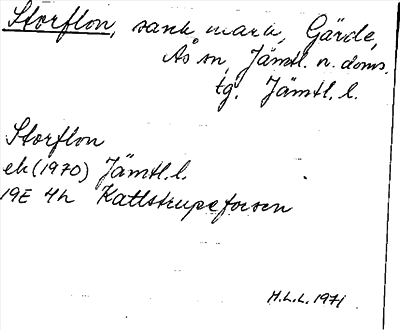 Storflon, sank mark, Gärde,
Ås sn, Jämtl. n. doms.
tg. Jämtl. l.
Storflon
ek (1970) Jämtl. l.
19E 4h Kattstrupeforsen
H.L.L. 1971